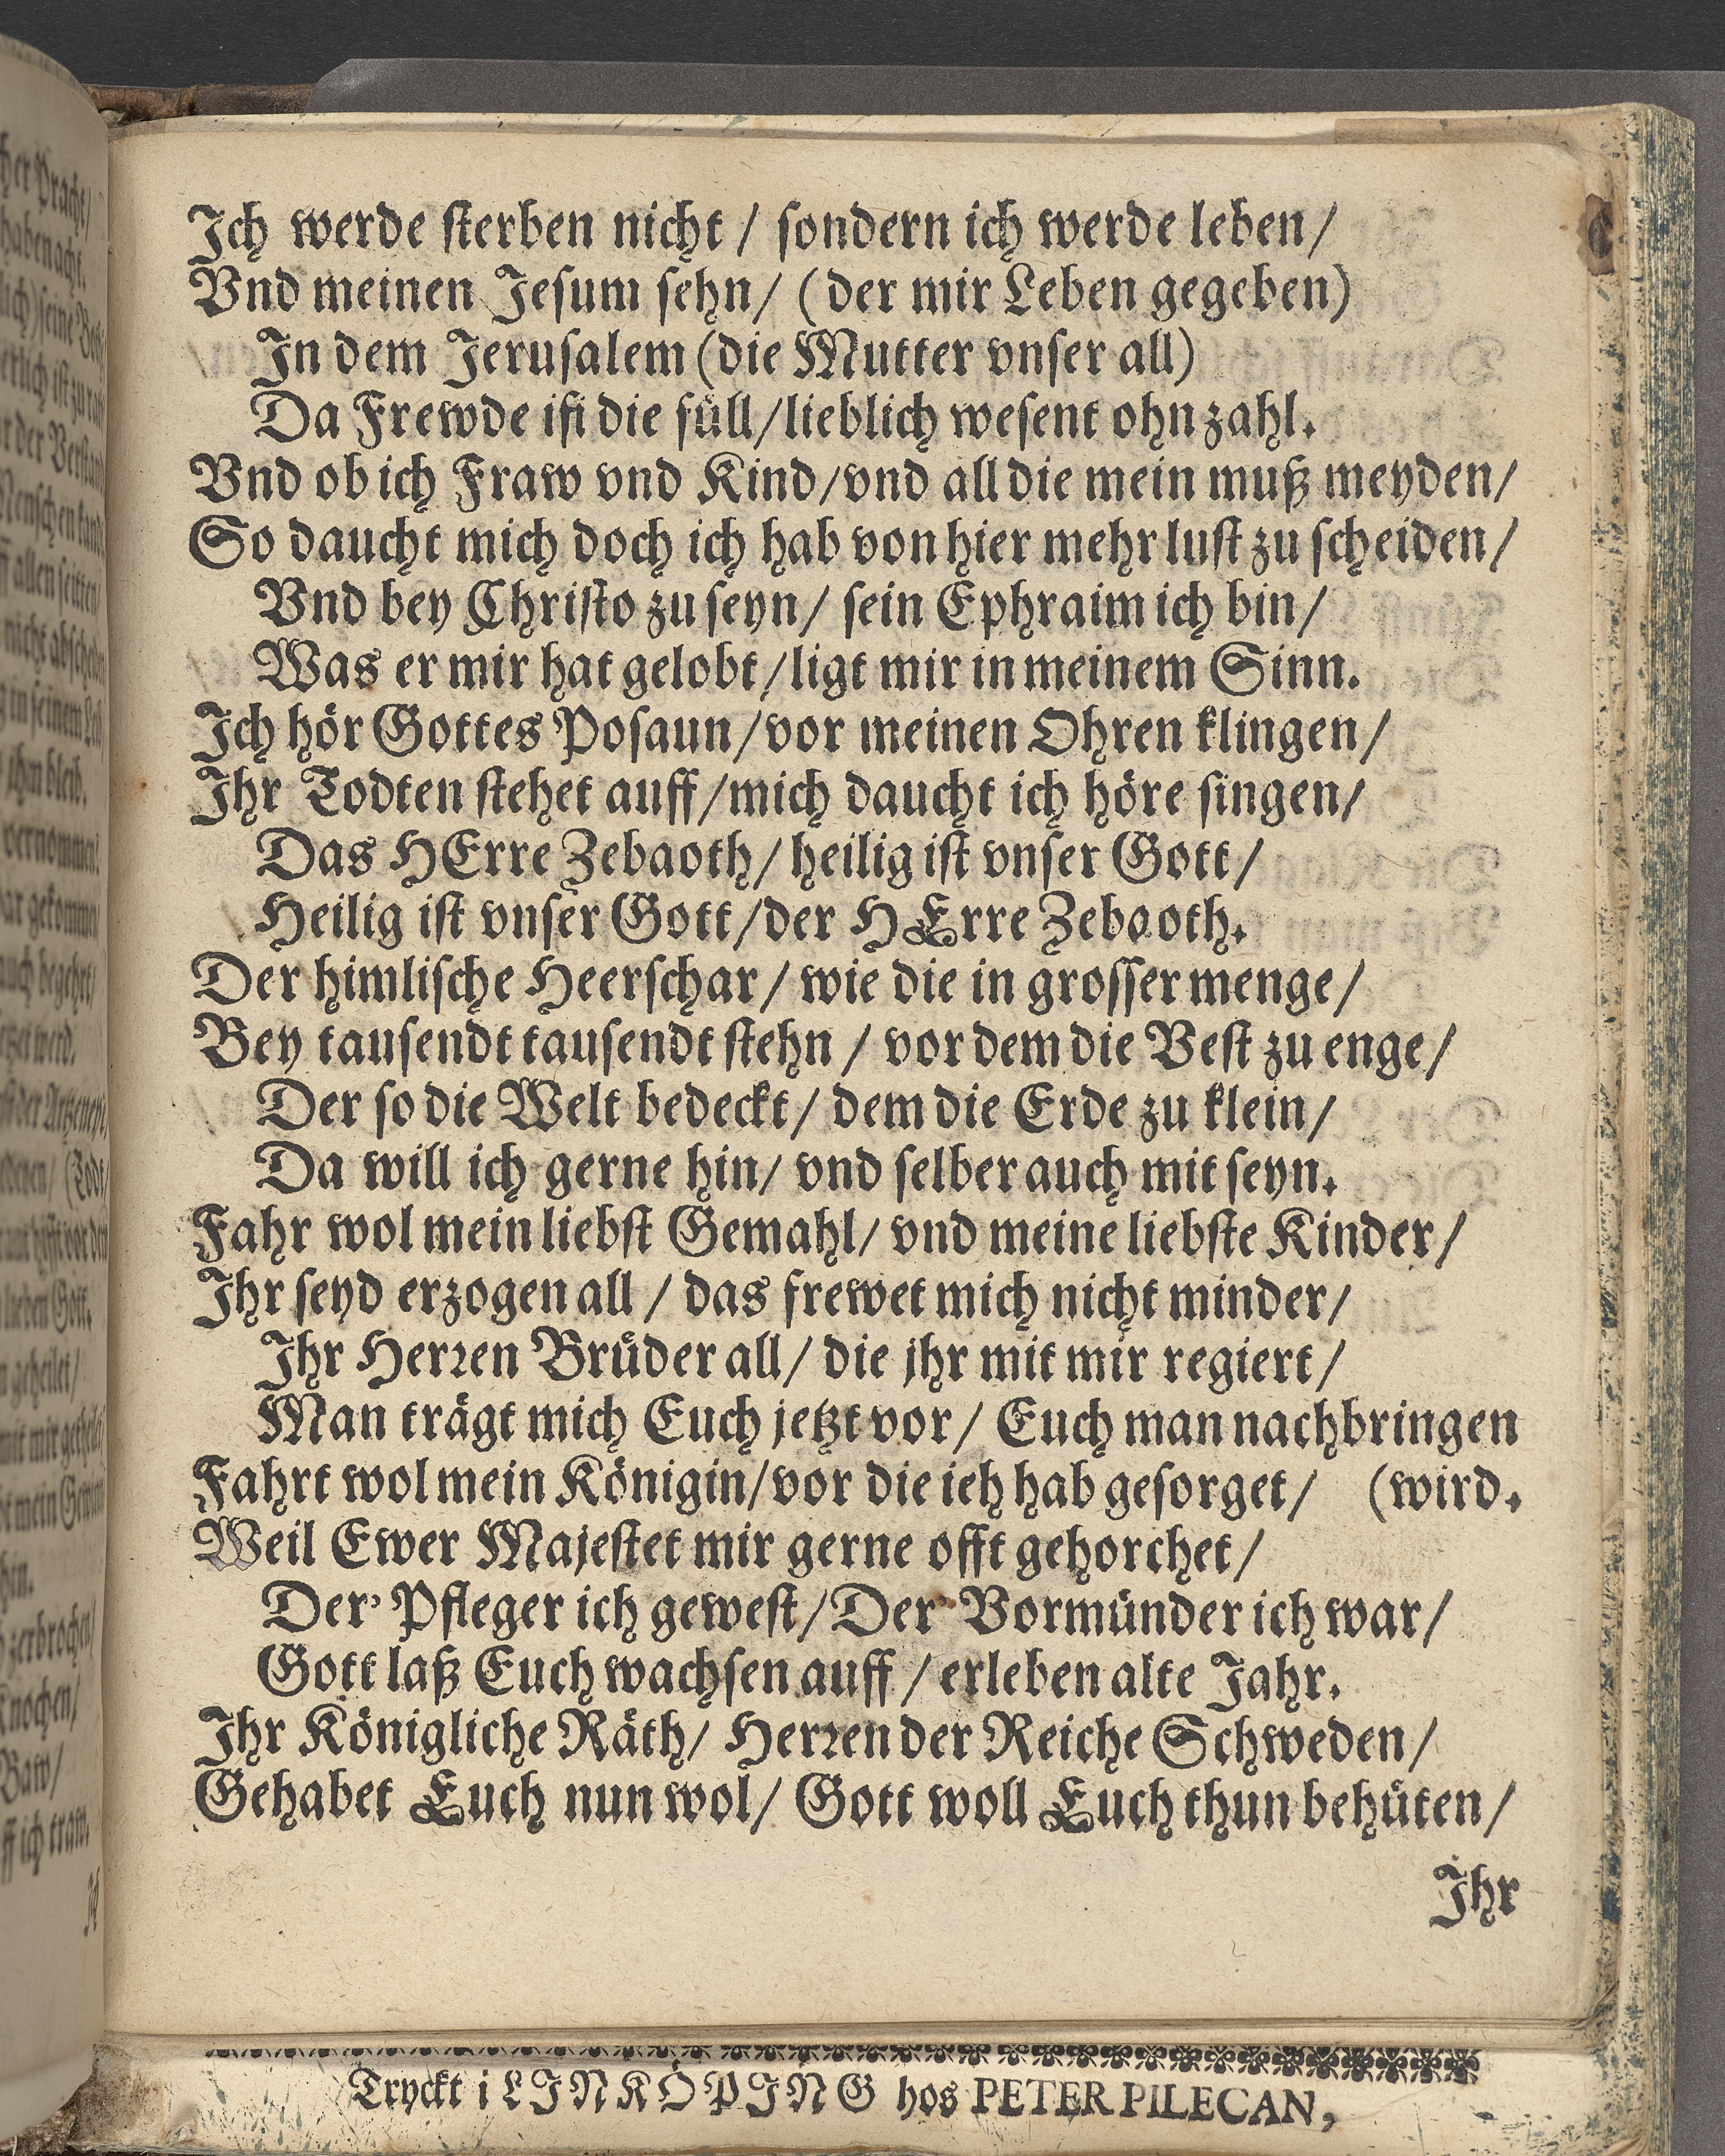 Ich werde sterben nicht / sondern ich werde leben /
Vnd meinen Jesum sehn / (der mir Leben gegeben)
In dem Jerusalem (die Mutter vnser all)
Da Frewde ist die füll / lieblich wesent ohn zahl.
Vnd ob ich Fraw vnd Kind / vnd all die mein muß meyden /
So daucht mich doch ich hab von hier mehr lust zu scheiden /
Vnd bey Christo zu seyn / sein Ephraim ich bin /
Was er mir hat gelobt / ligt mir in meinem Sinn.
Ich hör Gottes Posaun / vor meinen Ohren klingen /
Ihr Todten stehet auff / mich daucht ich höre singen /
Das HErre Zebaoth / heilig ist vnser Gott /
Heilig ist vnser Gott / der HErre Zebaoth.
Der himlische Heerschar / wie die in grosser menge /
Bey tausendt tausendt stehn / vor dem die Vest zu enge /
Der so die Welt bedeckt / dem die Erde zu klein /
Da will ich gerne hin / vnd selber auch mit seyn.
Fahr wol mein liebst Gemahl / vnd meine liebste Kinder /
Ihr seyd erzogen all / das frewet mich nicht minder /
Ihr Herren Brüder all / die jhr mit mir regiert /
Man trägt mich Euch jetzt vor / Euch man nachbringen
Fahrt wol mein Königin / vor die ieh hab gesorget / (wird.
Weil Ewer Majestet mir gerne offt gehorchet /
Der' Pfleger ich gewest / Der Vormünder ich war /
Gott laß Euch wachsen auff / erleben alte Jahr.
Ihr Königliche Räth / Herren der Reiche Schweden /
Gehabet Euch nun wol / Gott woll Euch thun behüten /
Ihr
Tryckt i LINKÖPING hos PETER PILECAN,